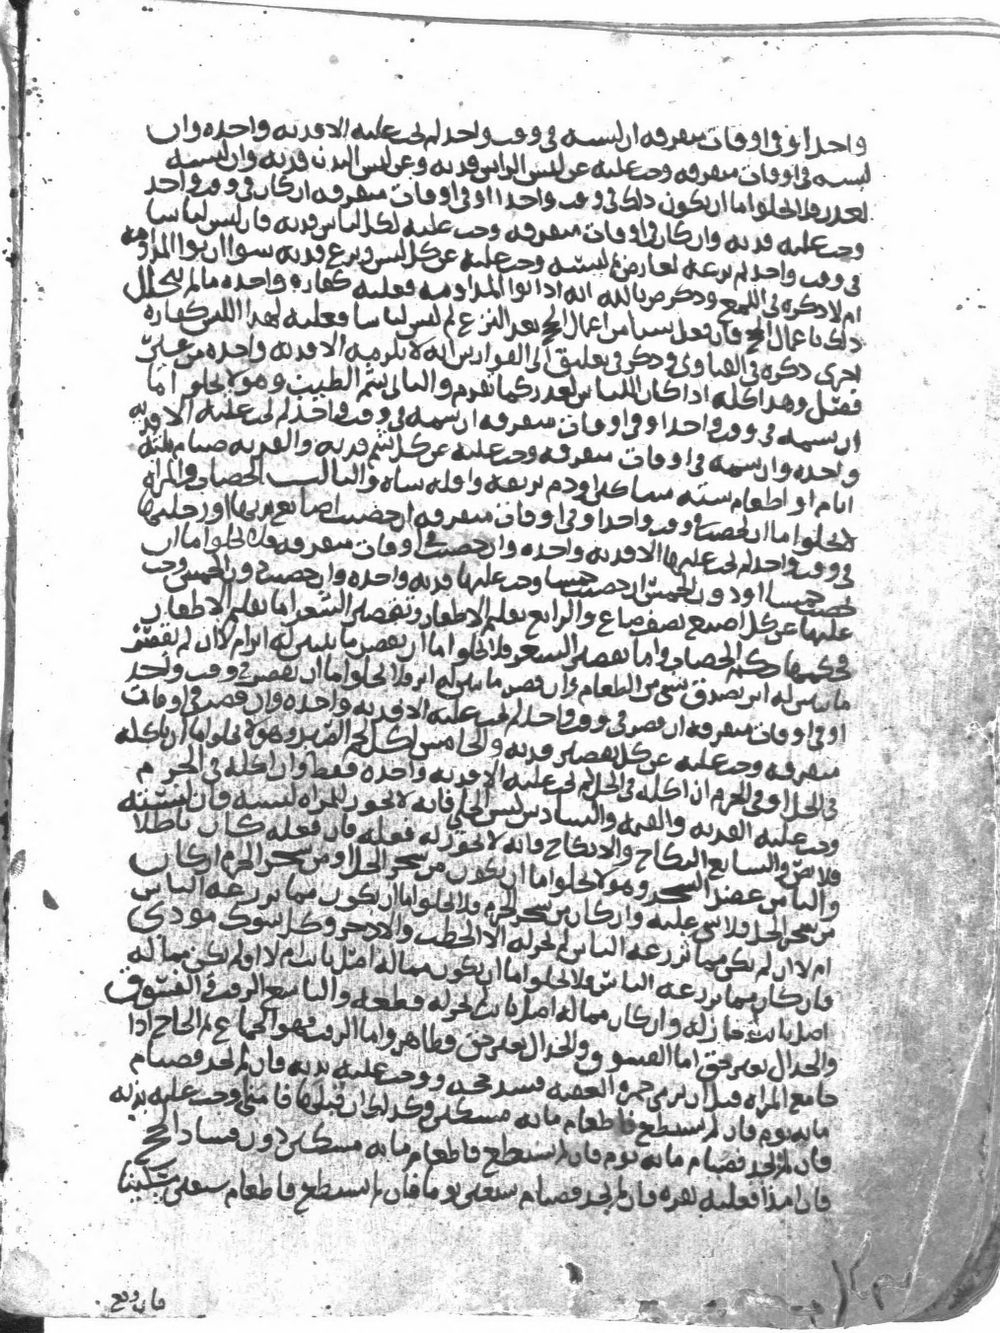 واحدا وفى اوقات متفرقه ان لبسه فى وقت واحد لم يجب عليه الا فديه واحده وان
لبسه فى اوقات متفرقه وجب عليه عن لبس الراس فديه وعن لبس البدن فديه وان لبسه
لعذر فلا يخلو اما ان يكون ذلك فى وقت واحد او فى اوقات متفرقه ان كان فى وقت واحد
وجب عليه فديه وان كان فى اوقات متفرقه وجب عليه لكل لباس فديه فان لبس لباسا
فى وقت واحد ثم نزعه لعارض ثم لبسه وجب عليه عن كل لبس ونزع فديه سوا ان نوا المداومه
ام لا ذكره فى اللمع وذكر ض بالله انه اذا نوا المداومه فعليه كفاره واحده ما لم يتخلل
ذلك باعمال الحج فان فعل شيا من اعمال الحج بعد النزع ثم لبس لباسا فعليه لهذا اللبس كفاره
اخرى ذكره فى الفتاوى وذكر فى تعليق ابى الفوارس انه لا يلزمه الا فديه واحده من غير
فصل وهذا كله اذا كان اللباس لعذر كما تقدم والثانى شم الطيب وهو لا يخلو اما
ان شمه فى وقت واحد او فى اوقات متفرقه ان شمه فى وقت واحد لم يجب عليه الا فديه
واحده وان شمه فى اوقات متفرقه وجب عليه عن كل شم فديه والفديه صيام ثلثه
ايام او اطعام سته مساكين او دم يريقه واقله شاه والثالث الخضاب والمراه
لا يخلو اما ان تخضب فى وقت واحد او فى اوقات متفرقه ان خضبت اصابع يديها او رجليها
فى وقت واحد لم يجب عليها الا فديه واحده وان خضبت فى اوقات متفرقه فلا يخلو اما ان
تخضب خمسا او دون الخمس ان خضبت خمسا وجب عليها فديه واحده وان خضبت دون الخمس وجب
عليها عن كل اصبع نصف صاع والرابع تقليم الاظفار وتقصير الشعر اما تقليم الاظفار
فحكمها حكم الخضاب واما تقصير الشعر فلا يخلو اما ان يقصر ما يتبين له اثر ام لا ان لم يقصر
ما يتبين له اثر تصدق بشى من الطعام وان قصر ما يتبين له اثر فلا يخلو اما ان يقصر فى وقت واحد
او فى اوقات متفرقه ان قصر فى وقت واحد لم يجب عليه الا فديه واحده وان قصر فى اوقات
متفرقه وجب عليه عن كل تقصير فديه والخامس اكل لحم الصيد وهو لا يخلو اما ان ياكله
فى الحل او فى الحرم ان اكله فى الحل لم يجب عليه الا فديه واحده فقط وان اكله فى الحرم
وجب عليه الفديه والقيمه والسادس لبس الحلى فانه لا يجوز للمراه لبسه فان لبسته
فلا شى والسابع النكاح والانكاح فانه لا يجوز له فعله فان فعله كان باطلا
والثامن عضد الشجر وهو لا يخلو اما ان يكون من شجر الحل او من شجر الحرم ان كان
من شجر الحل فلا شى عليه وان كان من شجر الحرم فلا يخلو اما ان يكون مما يزرعه الناس
ام لا ان لم يكن مما يزرعه الناس لم يجز له الا الحطب والاذخر وكل شوك موذى
فان كان مما يزرعه الناس فلا يخلو اما ان يكون مما له اصل ثابت ام لا ان لم يكن مما له
اصل ثابت جاز له وان كان مما له اصل ثابت لم يجز له قطعه والتاسع الرفث والفسوق
والجدال بغير حق اما الفسوق والجدال بغير حق فظاهر واما الرفث فهو الجماع ثم الحاج اذا
جامع المراه قبل ان يرمى جمرة العقبه فسد حجه ووجب عليه بدنه فان لم يجد فصيام
مايه يوم فان لم يستطع فاطعام مايه مسكين وكذلك ان قبلها فامنى وجب عليه بدنه
فان لم يجد فصيام مايه يوم فان لم يستطع فاطعام مايه مسكين دون فساد الحج
فان امذا فعليه بقره فان لم يجد فصيام سبعين يوما فان لم يستطع فاطعام سبعين مسكينا
فان وقع